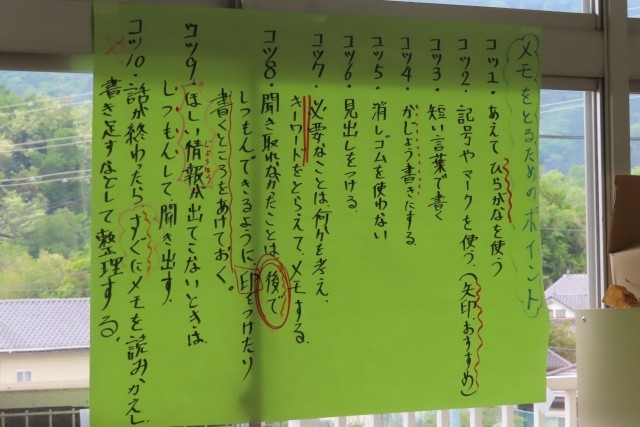 メモをとるためのポイント
コツ1・あえてひらがなを使う
コツ2・記号やマークを使う。(矢印おすすめ)
コツ3・短い言葉で書く
コツ4・かじょう書きにする。
コツ5・消しゴムを使わない
コツ6・見出しをつける。
コツ7・必要なことは何かを考え、
キーワードをとらえて、メモする。
コツ8・聞き取れなかったことは後で
しつもんできるように、印をつけたり
書くところをあけておく。
コツ9・ほしい情報が出てこないときは、
しつもんして聞き出す。
コツ10・話が終わったら、すぐにメモを読みかえし、
書き足すなどして整理する。